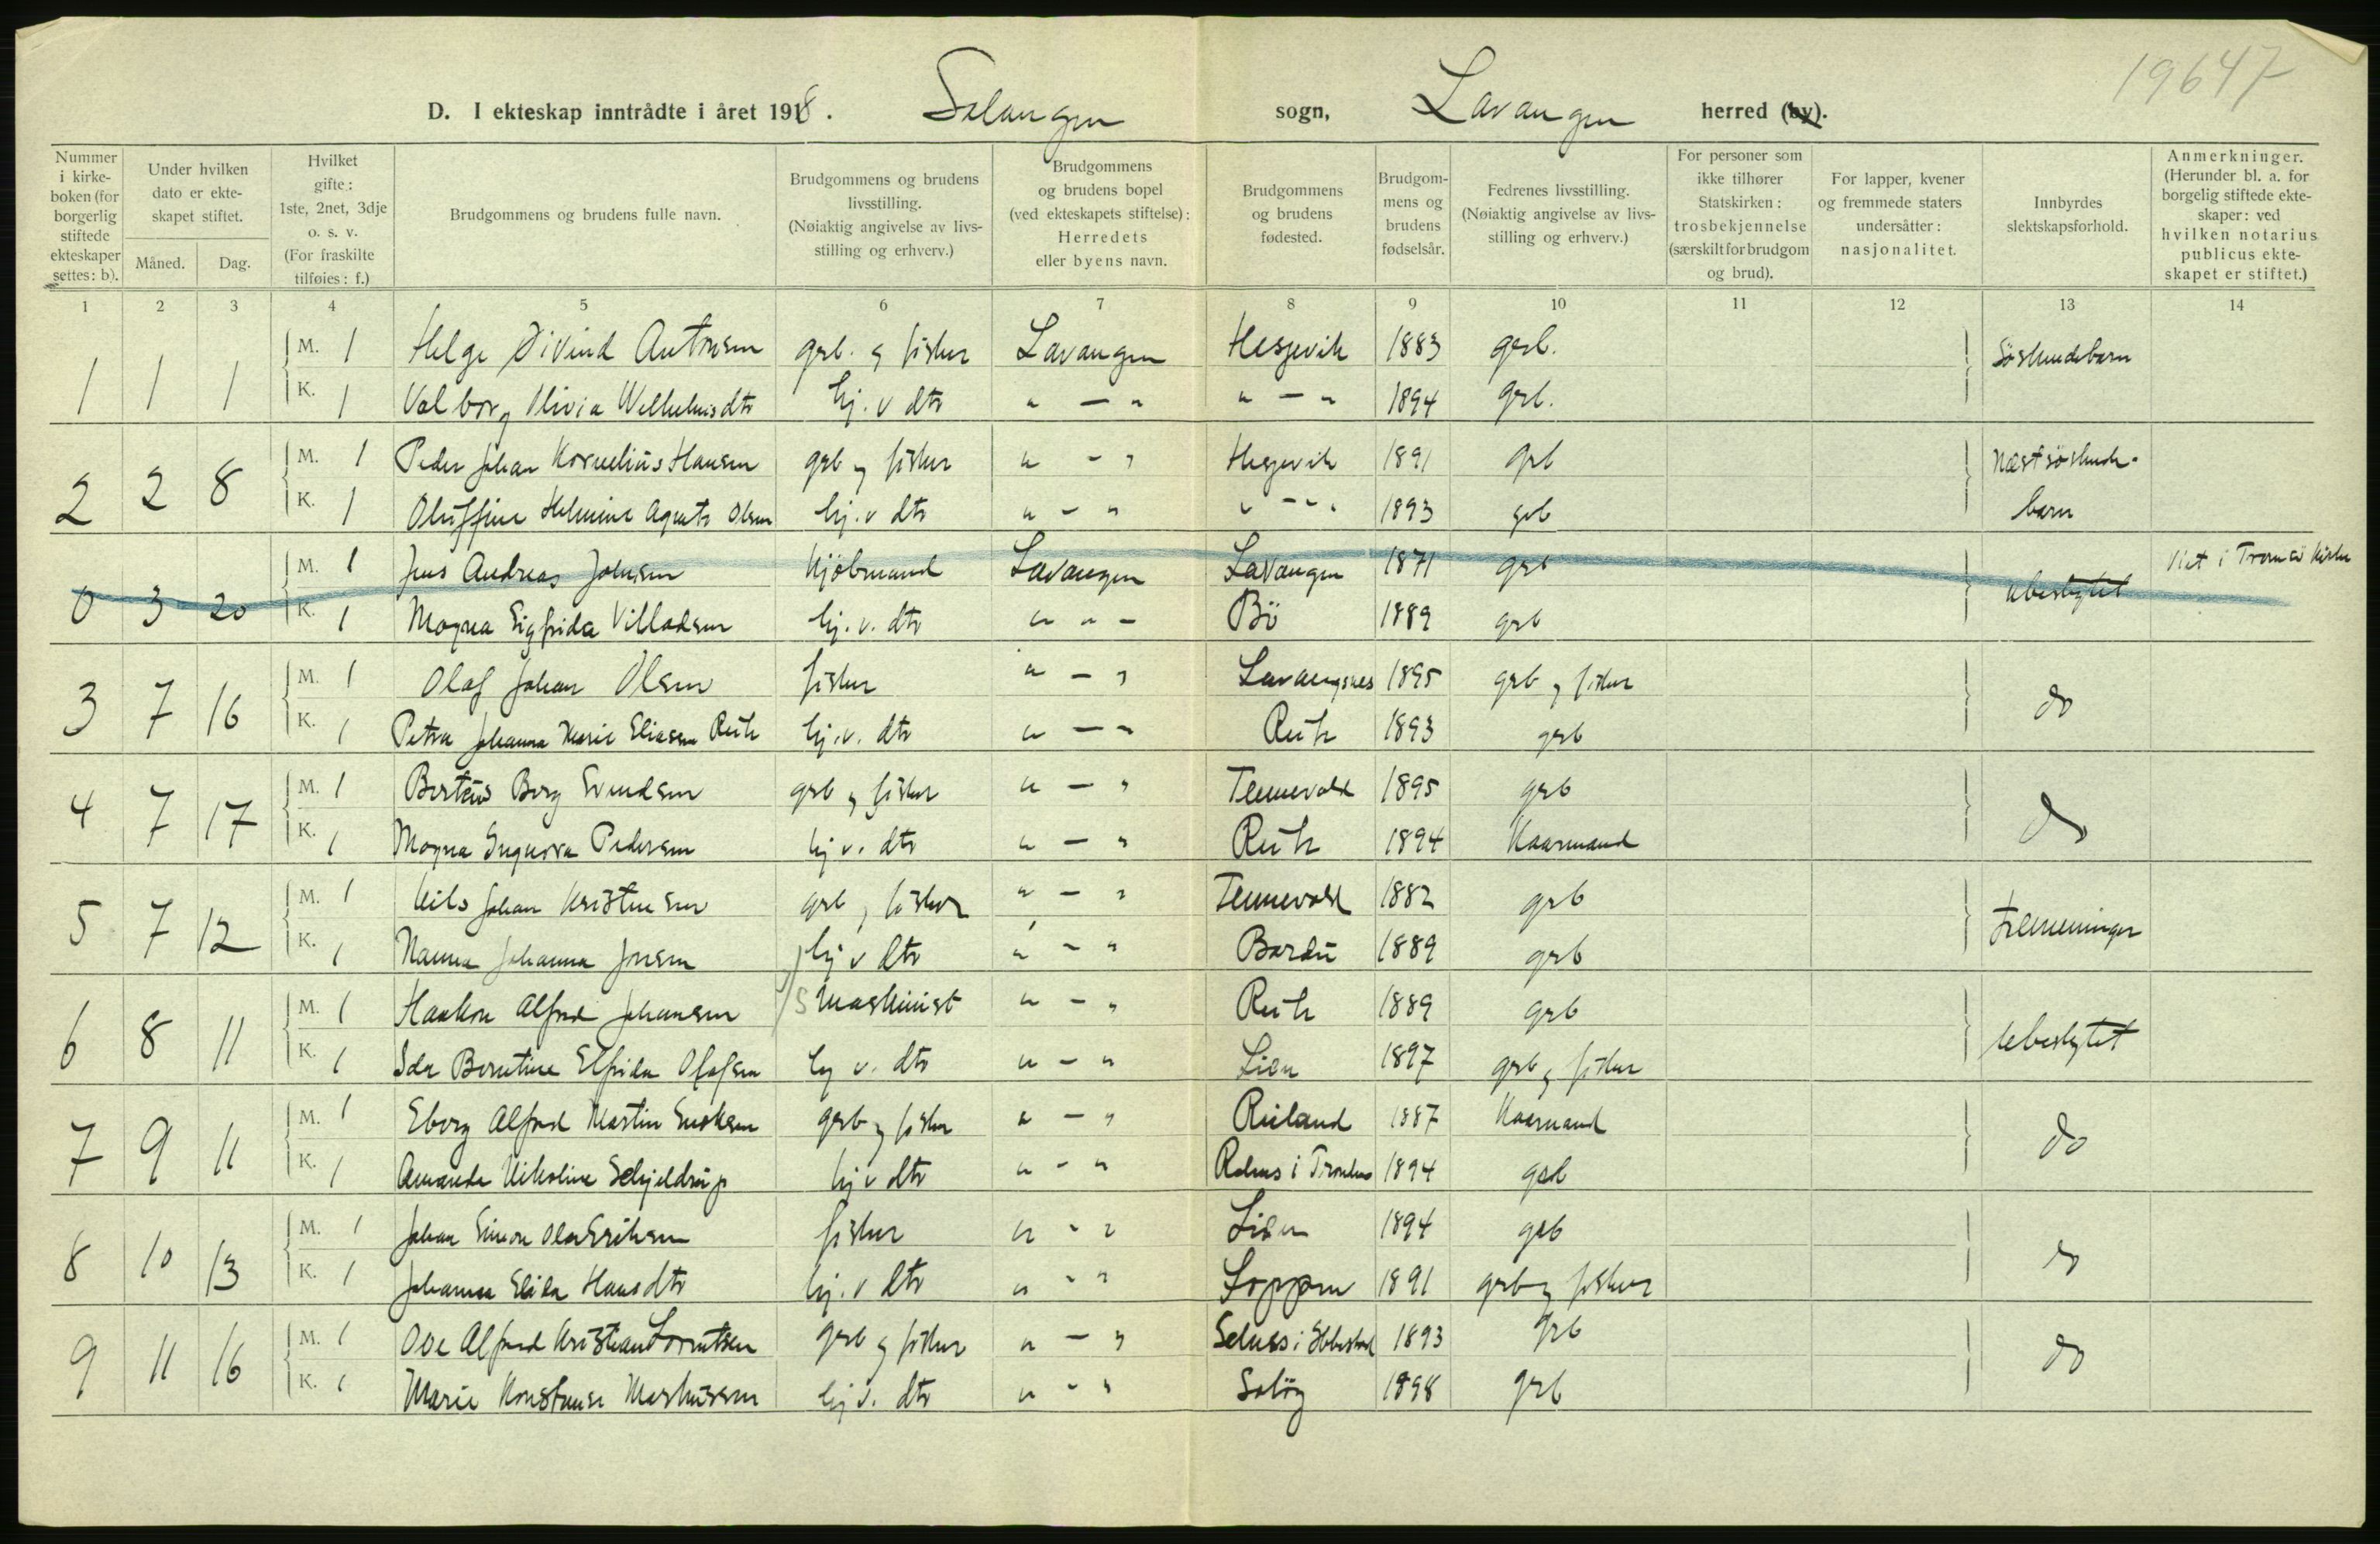 19647
D. I ekteskap inntrådte i året 1918. Salangen sogn, Lavangen herred (by).
Nummer i kirkeboken (for borgerlig stiftede ekteskaper settes: b).
Under hvilken dato er ekteskapet stiftet. Måned. Dag.
Hvilket gifte: 1ste, 2net, 3dje o. s. v. (For fraskilte tilføies: f.)
Brudgommens og brudens fulle navn.
Brudgommens og brudens livsstilling. (Nøiaktig angivelse av livsstilling og erhverv.)
Brudgommens og brudens bopel (ved ekteskapets stiftelse): Herredets eller byens navn.
Brudgommens og brudens fødested.
Brudgommens og brudens fødselsår.
Fedrenes livsstilling. (Nøiaktig angivelse av livsstilling og erhverv.)
For personer som ikke tilhører Statskirken: trosbekjennelse (særskilt for brudgom og brud).
For lapper, kvener og fremmede staters undersåtter: nasjonalitet.
Innbyrdes slektskapsforhold.
Anmerkninger. (Herunder bl. a. for borgelig stiftede ekteskaper: ved hvilken notarius publicus ekteskapet er stiftet.)
1 2 3 4 5 6 7 8 9 10 11 12 13 14
1 1 1 M. 1 Helge Øivind Antonsen grb. og fisker Lavangen Hesjevik 1883 grb. Søskendebarn
K. 1 Valborg Olivia Wilhelmsdtr hj. v dtr " - " " - " 1894 grb.
2 2 8 M. 1 Peder Johan Kornelius Hansen grb og fisker " - " Hesjevik 1891 grb Næstsøskende-
K. 1 Oluffine Helmine Agnete Olsen hj. v dtr " - " " - " 1893 grb barn
0 3 20 M. 1 Jens Andreas Johnsen Kjøbmand Lavangen Lavangen 1871 grb ubeslegtet Viet i Tromsø kirke
K. 1 Magna Sigfrida Villadsen hj. v. dtr " " - Bö 1889 grb
3 7 16 M. 1 Olaf Johan Olsen fisker " - " Lavangsnes 1895 grb og fisker do
K. 1 Petra Johanna Marie Eliasen Rüh hj. v. dtr " - " Rüh 1893 grb
4 7 17 M. 1 Berteus Berg Svendsen grb og fisker " - " Tennevold 1895 grb do
K. 1 Magna Ingnora Pedersen hj v. dtr " - " Rüh 1894 Kaarmand
5 7 12 M. 1 Nils Johan Kristensen grb og fisker " - " Tennevold 1882 grb Tremenninger
K. 1 Hanna Johanna Jensen hj v dtr " - " Bardu 1889 grb
6 8 11 M. 1 Haakon Alfred Johansen Maskinist " - " Rüh 1889 grb ubeslegtet
K. 1 Ida Berntine Elfrida Olafsen hj v. dtr " - " Lien 1897 grb og fisker
7 9 11 M. 1 Eberg Alfred Martin Enoksen grb og fisker " - " Rüland 1887 Kaarmand do
K. 1 Amanda Nikoline Schjeldrup hj v dtr " - " 1894 grb
8 10 13 M. 1 Johan Simon Ola Eriksen fisker " - " Lien 1894 grb do
K. 1 Johanna Elida Hansdtr hj. v dtr " - " Loppen 1891 grb og fisker
9 11 16 M. 1 Ove Alfred Kristian Lorentsen grb og fisker " - " Selnes i Ibbestad 1893 grb do
K. 1 Marie Konstanse Markussen hj v. dtr " - " Soløy 1898 grb